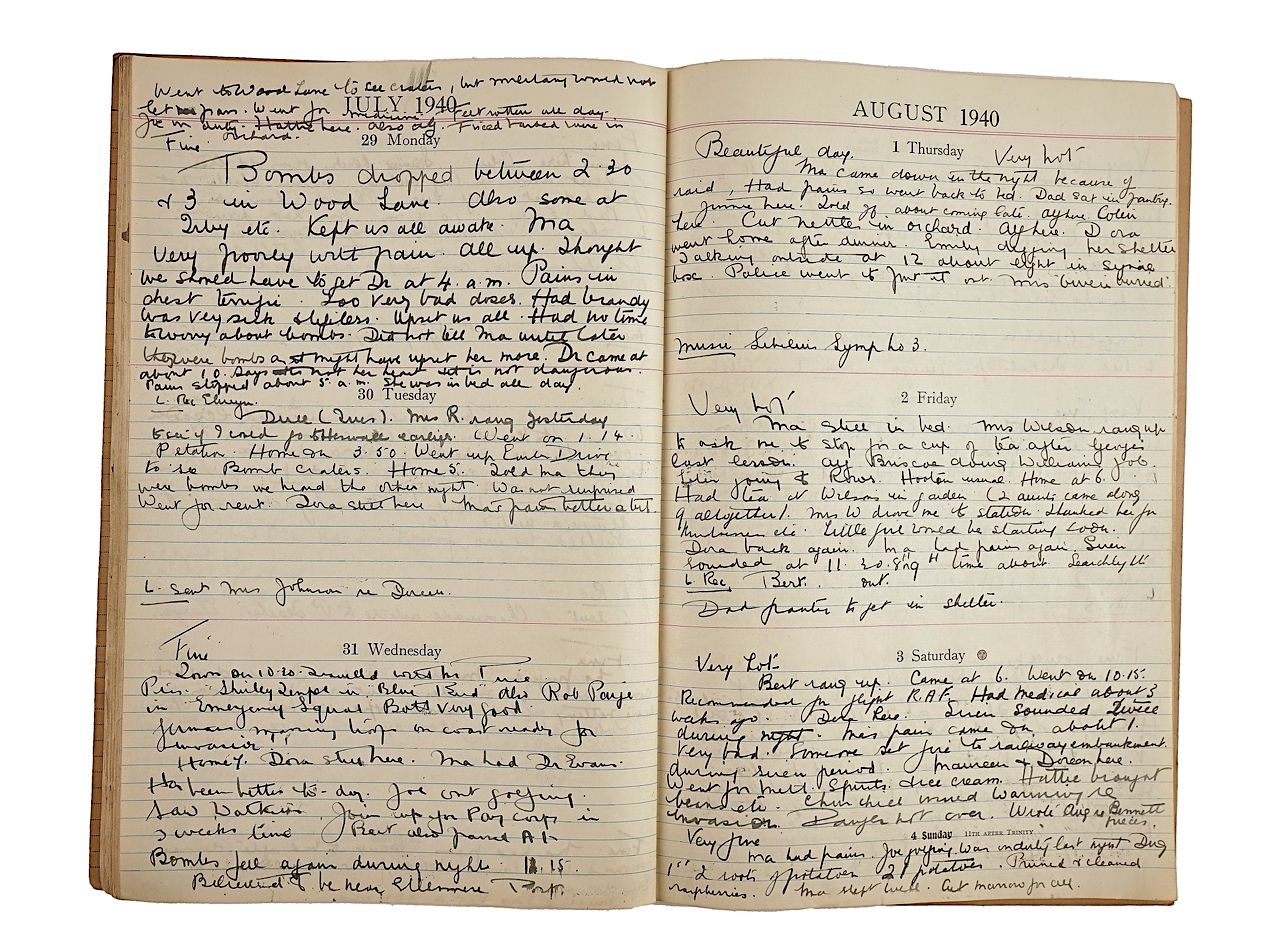 Went to Wood Lane to see craters, but military would not
let pass. Went for medicine. Felt rotten all day.
JULY 1940
Joe on duty. Hattie here. also Alf.
orchard.
Fine.
29 Monday
Bombs dropped between 2.30
& 3 in Wood Lane. Also some at
Irby etc. Kept us all awake. Ma
very poorly with pain. All up. Thought
we should have to get Dr at 4 a.m. Pains in
chest terrific. Two very bad doses. Had brandy
was very sick. Upset us all. Had no time
to worry about bombs. Did not tell Ma until later
they were bombs as it might have upset her more. Dr came at
about 10. Says its not her heart & it is not dangerous.
Pains stopped about 5 a.m. She was in bed all day.
30 Tuesday
L. Rec Elwyn.
(Tues). Mrs R. rang yesterday
to see if I could go earlier. Went on 1.14
Home on 3.50. Went up Drive
to see Bomb craters. Home 5. Told Ma they
were bombs we heard the other night. Was not surprised
Went for rent. Dora still here. Ma's pain better a bit.
L. Sent Mrs Johnson re Doreen.
31 Wednesday
Fine
Down on 10.30.
Shirley Temple in "Blue Bird" also Rob Paige
in "Emergency Squad" Both very good.
Germans massing troops on coast ready for
invasion.
Home 7. Dora still here. Ma had Dr Evans.
Has been better to-day. Joe out golfing.
Saw Watkins. Joins up for Pay Corps in
3 weeks time. Bert also passed A1.
Bombs fell again during night 11.15.
Believed to be near Ellesmere Port.
AUGUST 1940
1 Thursday
Beautiful day. Very hot
Ma came down in the night because of
raid, Had pains so went back to bed. Dad sat in pantry.
Jimmie here. Told off about coming late. Alf here. Colin
here. Cut nettles in orchard. Alf here. Dora
went home after dinner. Emily digging her shelter
Talking outside at 12 about light in signal
box. Police went to put it out. Mrs Given buried.
Music Sibelius Symp No 3.
2 Friday
Very hot
Ma still in bed. Mrs Wilson rang up
to ask me to stop for a cup of tea after George's
last lesson. Alf Briscoe doing William's job.
Hooton usual. Home at 6.
Had tea at Wilson's in garden (2 aunts came along
9 altogether). Mrs W drove me to station. Thanked her for
kindness etc. Little girl would be starting soon.
Dora back again. Ma had pain again. Siren
sounded at 11.30. 8" time about. Searchlights
L Rec, Bert. out.
Dad to get in shelter.
3 Saturday
Very hot
Bert rang up. Came at 6. Went on 10.15.
Recommended for flight R.A.F. Had medical about 3
weeks ago. Dora here. Siren sounded twice
during night. Ma's pain came on about 1.
Very bad. Someone set fire to railway embankment
during siren period. Maureen & Doreen here.
Went for Spirits. Ice cream. Hattie brought
beans etc. Churchill issued warning re
invasion. Danger not over. Wrote Aug re Bennett
pieces.
4 Sunday 11TH AFTER TRINITY
Very fine
Ma had pains. Joe golfing. Was on duty last night. Dug
1st 2 roots of potatoes. 21 potatoes. Pruned & cleaned
raspberries. Ma slept well. Cut marrow for